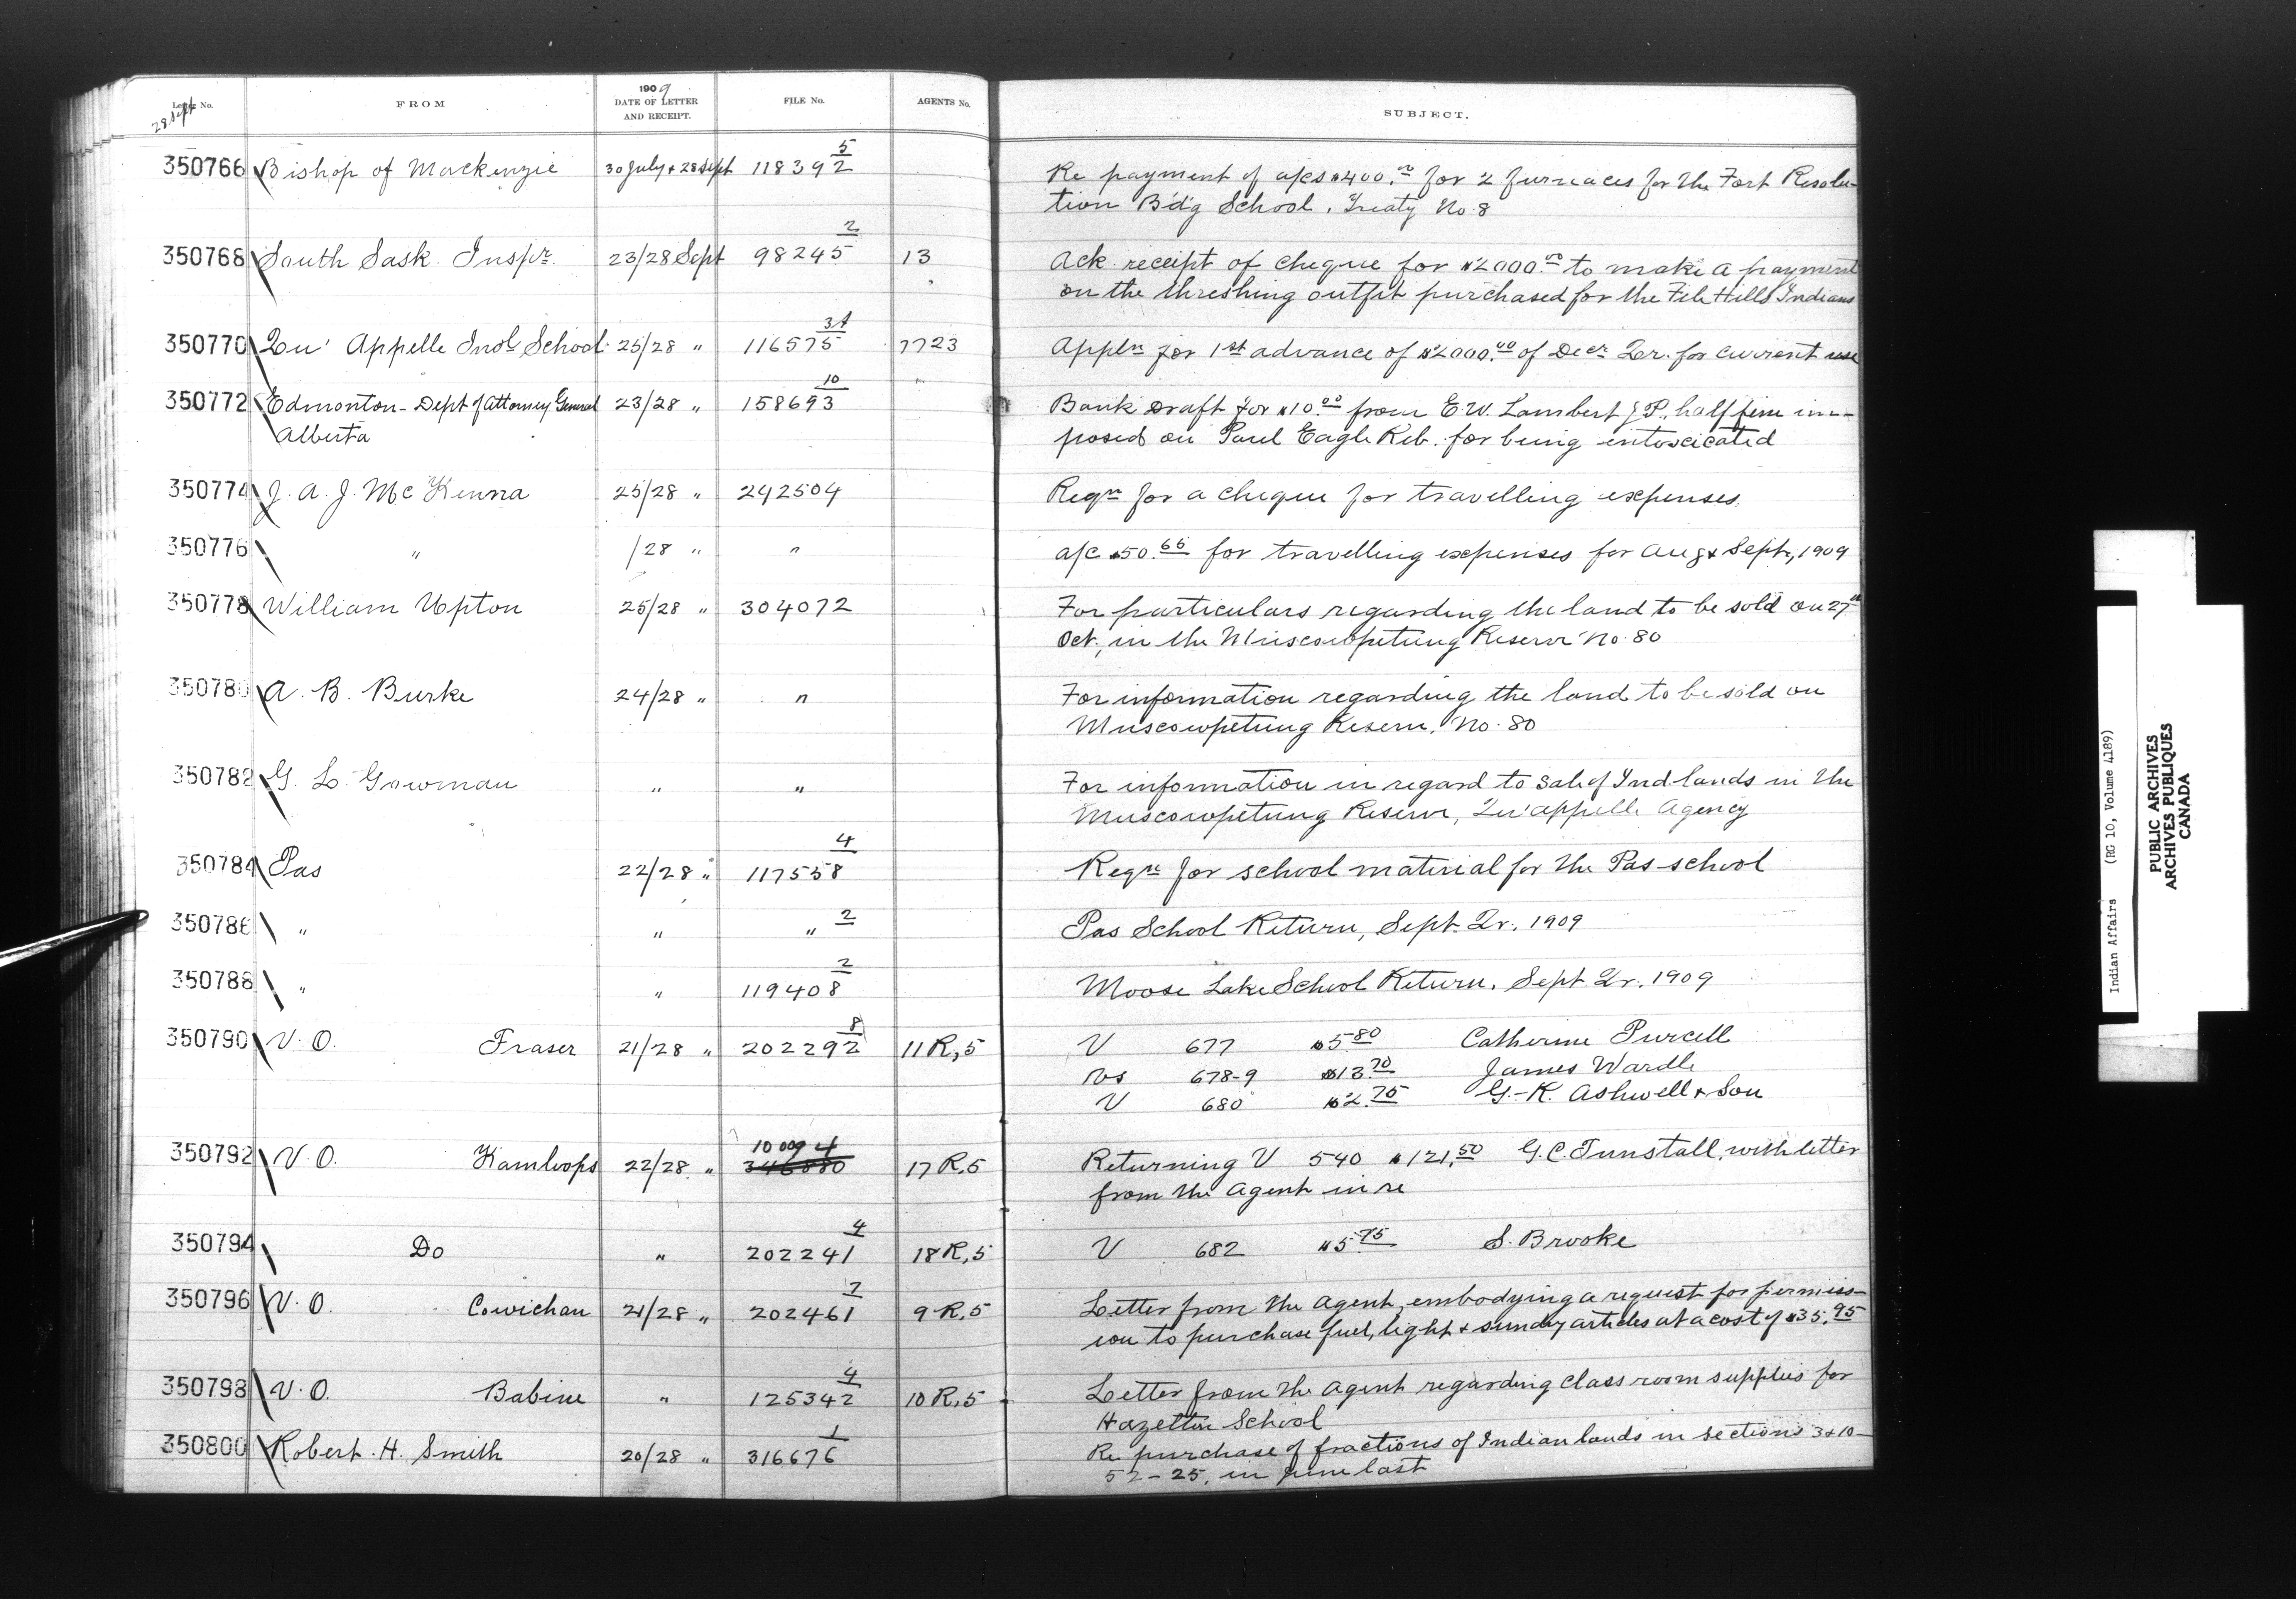 Letter No.
28 Sept
FROM
1909
DATE OF LETTER
AND RECEIPT.
FILE No.
AGENTS No.
SUBJECT.
350766 Bishop of Mackenzie 30 July + 28 Sept 118392 5 Re payment of a/cs $400.00 for 2 furnaces for the Fort Resolu-
tion B'd'g School, Treaty No. 8
350768 South Sask. Inspr. 23/28 Sept 98245 2 13 Ack. receipt of cheque for $2000.00 to make a payment
on the threshing outfit purchased for the File Hills Indians
350770 Qu' Appelle Indl. School 25/28 " 116575 3A 7723 Appln for 1st advance of $2000.00 of Decr. Qr. for current use
350772 Edmonton - Dept of Attorney General 23/28 " 158693 10 Bank Draft for $10.00 from E. W. Lambert J.P., half fine im-
Alberta posed on Paul Eagle Rib. for being intoxicated
350774 J. A. J. McKenna 25/28 " 242504 Reqn for a cheque for travelling expenses.
350776 " /28 " " a/c $50.66 for travelling expenses for Aug + Sept, 1909
350778 William Upton 25/28 " 304072 For particulars regarding the land to be sold on 27th
Oct., in the Muscowpetung Reserve No. 80
350780 A. B. Burke 24/28 " " For information regarding the land to be sold on
Muscowpetung Reserve, No. 80
350782 G. L. Gowman " " For information in regard to sale of Ind lands in the
Muscowpetung Reserve, Qu'appelle Agency
350784 Pas 22/28 " 117538 4 Reqn for school material for the Pas school
350786 " " " 2 Pas School Return, Sept. Qr. 1909
350788 " " 119408 2 Moose Lake School Return, Sept Qr. 1909
350790 V. O. Fraser 21/28 " 202292 8 11 R, 5 V 677 $5.80 Catherine Purcell
Vs 678-9 $13.70 James Wardle
V 680 $2.75 G. K. Ashwell + Son
350792 V. O. Kamloops 22/28 " 10 009 4 346880 17 R, 5 Returning V 540 $121.50 G. C. Tunstall, with letter
from the Agent in re
350794 Do " 202241 4 18 R, 5 V 682 $5.75 S. Brooke
350796 V. O. Cowichan 21/28 " 202461 7 9 R, 5 Letter from the Agent, embodying a request for permiss-
ion to purchase fuel, light + sundry articles at a cost of $35.95
350798 V. O. Babine " 125342 4 10 R, 5 Letter from the Agent regarding class room supplies for
Hazelton School
350800 Robert. H. Smith 20/28 " 316676 1 Re purchase of fractions of Indian lands in sections 3 & 10 -
52 - 25, in June last
Indian Affairs (RG 10, Volume 4189)
PUBLIC ARCHIVES
ARCHIVES PUBLIQUES
CANADA